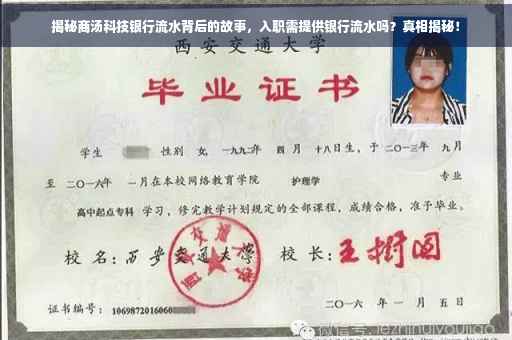 揭秘商汤科技银行流水背后的故事，入职需提供银行流水吗？真相揭秘！
西安交通大学
毕业证书
学生 性别 女，一九九二年 四月 十八日生，于 二〇一三年 九月
至 二〇一六年 一月在本校网络教育学院 护理学 专业
高中起点专科 学习，修完教学计划规定的全部课程，成绩合格，准予毕业。
校名：西安交通大学 校长：王树国
西安交通大学
证书编号：1069872016060
二〇一六年一月五日
微信号: lezhihuiyoujiao